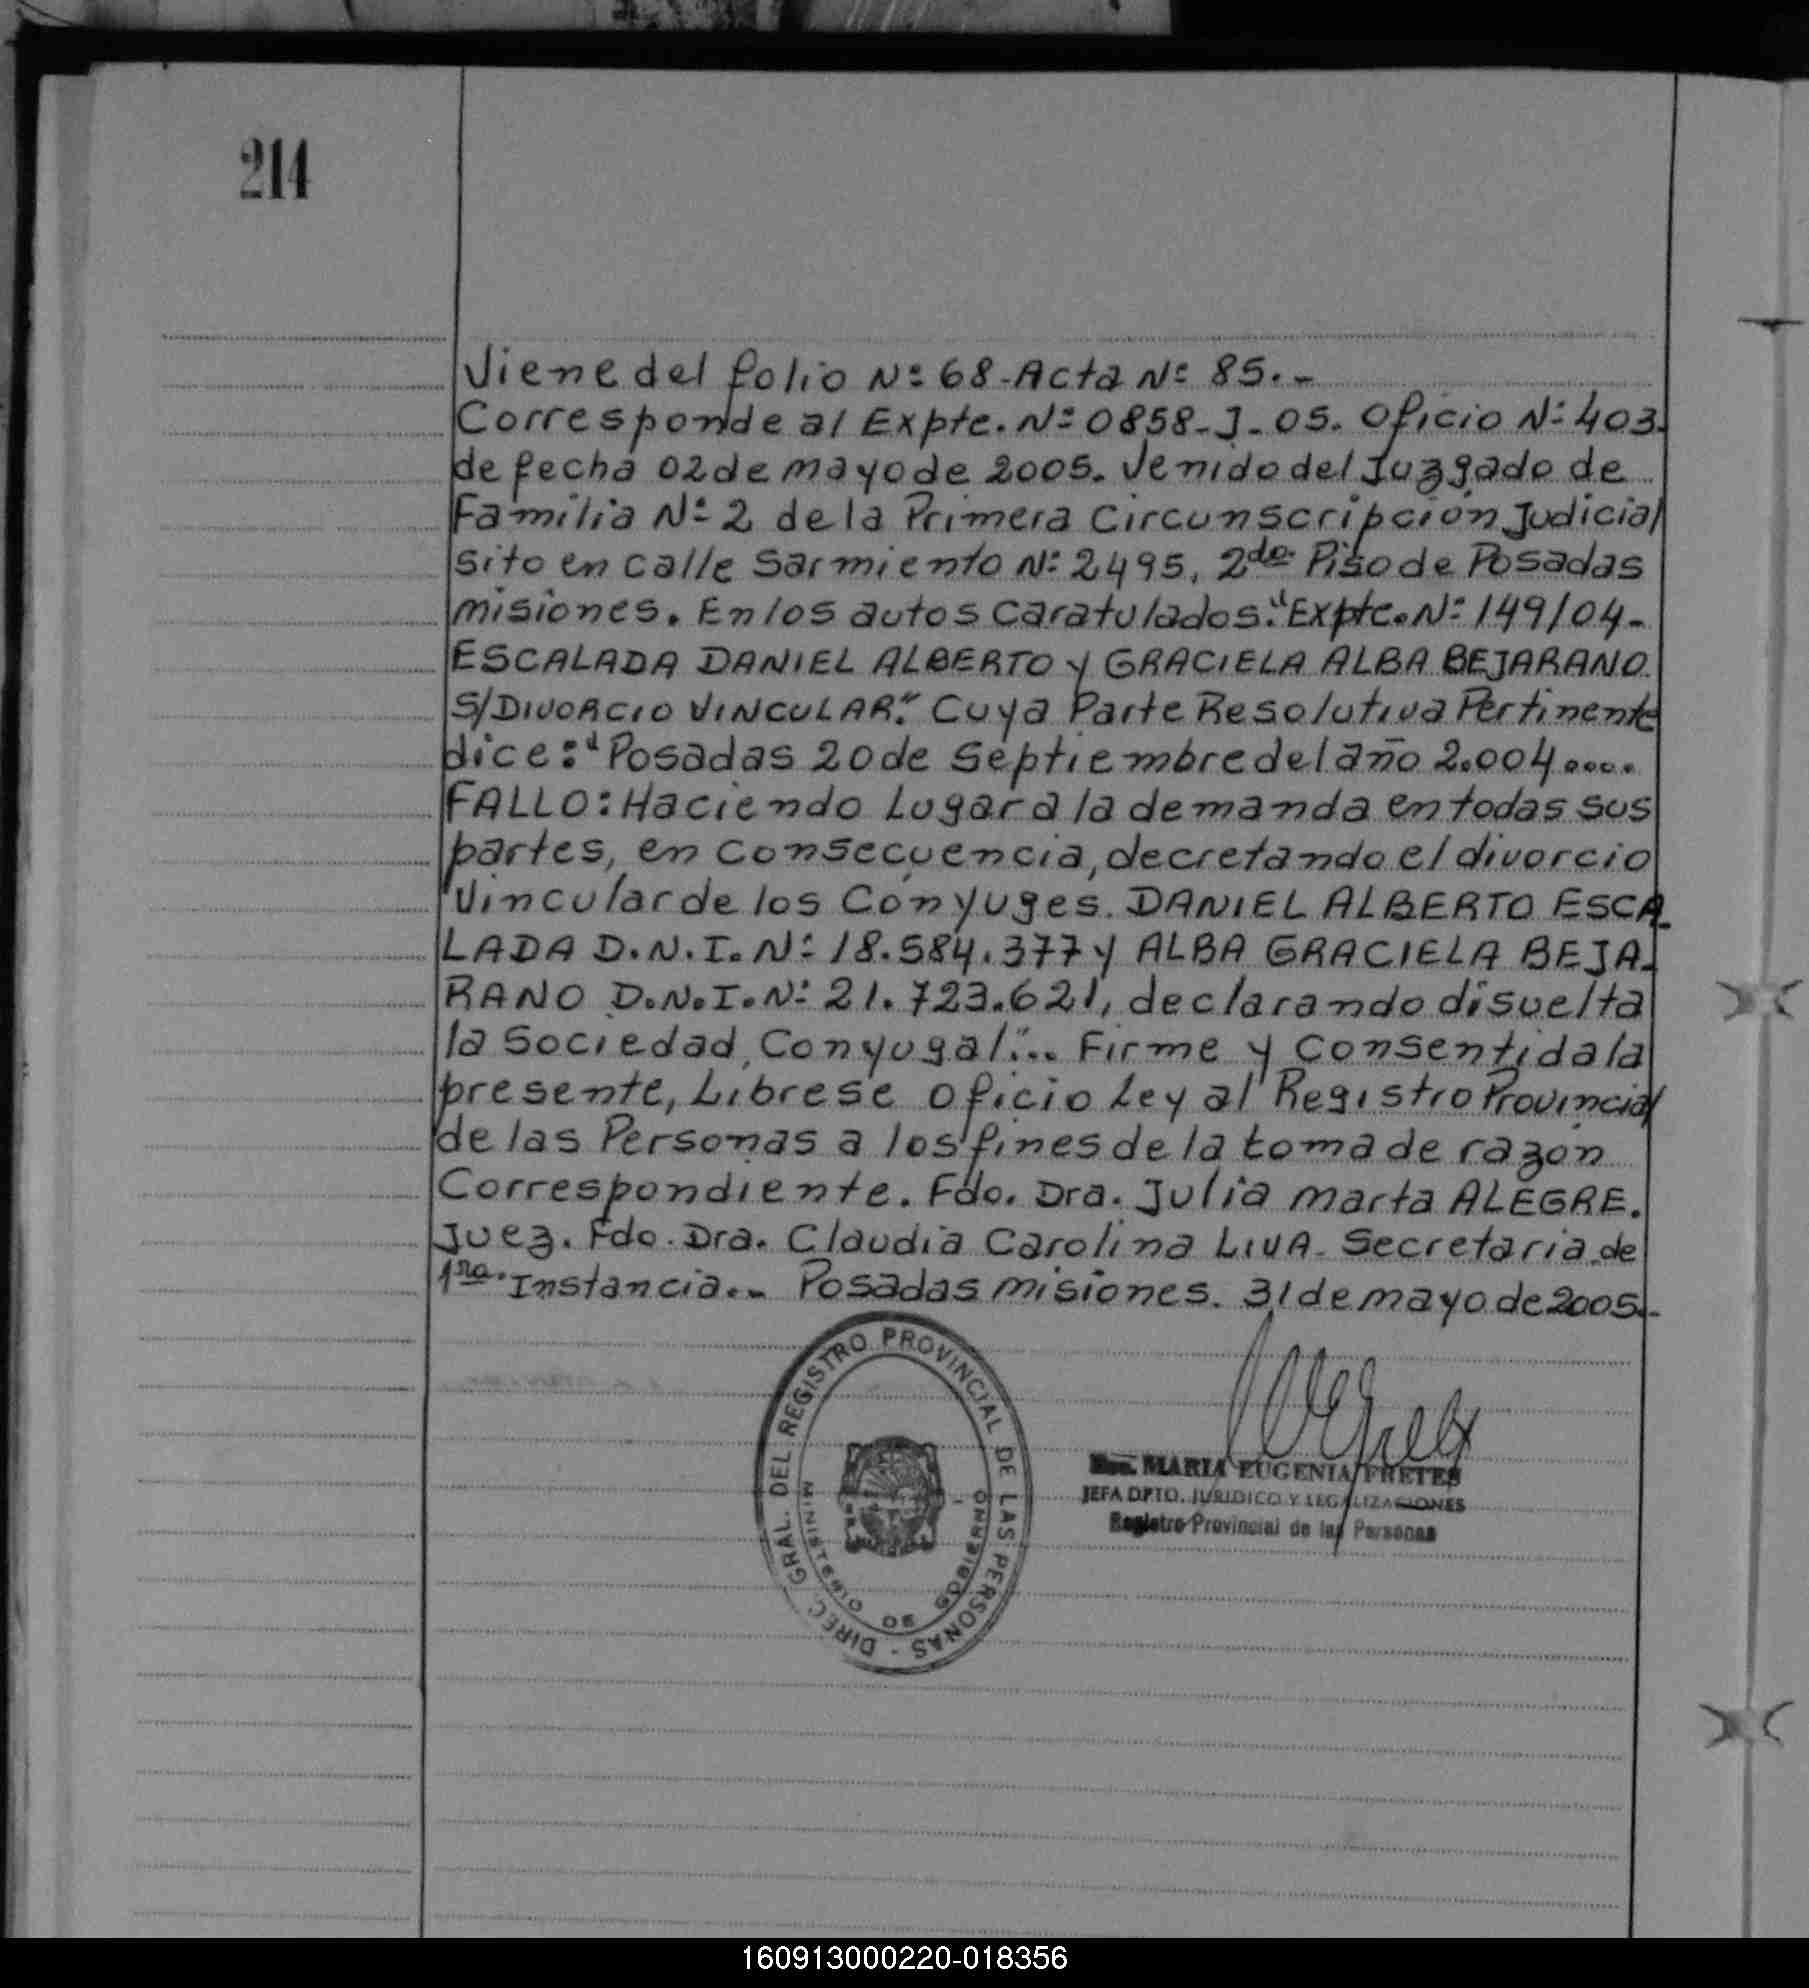 214
Viene del folio Nº 68-Acta Nº 85.-
Corresponde al Expte. Nº 0858-J-05. Oficio Nº 403.
de fecha 02 de mayo de 2005. Venido del Juzgado de
Familia Nº 2 de la Primera Circunscripción Judicial
sito en calle Sarmiento Nº 2495, 2do. Piso de Posadas
misiones. En los autos caratulados: "Expte. Nº 149/04-
ESCALADA DANIEL ALBERTO y GRACIELA ALBA BEJARANO
S/DIVORCIO VINCULAR." Cuya Parte Resolutiva Pertinente
dice: "Posadas 20 de Septiembre del año 2.004....
FALLO: Haciendo Lugar a la demanda en todas sus
partes, en consecuencia, decretando el divorcio
Vincular de los Cónyuges. DANIEL ALBERTO ESCA-
LADA D.N.I. Nº 18.584.377 y ALBA GRACIELA BEJA-
RANO D.N.I. Nº 21.723.621, declarando disuelta
la Sociedad, Conyugal"... Firme y Consentida la
presente, Librese Oficio Ley al Registro Provincial
de las Personas a los fines de la toma de razón
Correspondiente. Fdo. Dra. Julia Marta ALEGRE.
Juez. Fdo. Dra. Claudia Carolina LIVA- Secretaria de
1ra. Instancia.- Posadas misiones. 31 de mayo de 2005.-
DIREC. GRAL. DEL REGISTRO PROVINCIAL DE LAS PERSONAS -
MINISTERIO DE GOBIERNO
MARIA EUGENIA FRETES
JEFA DPTO. JURIDICO Y LEGALIZACIONES
Registro Provincial de las Personas
160913000220-018356